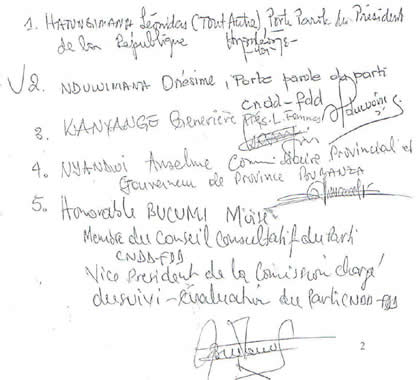 1. HATUNGIMANA Léonidas (Tout Autre) Porte Parole du Président
de la République
V2. NDUWIMANA Onésime, Porte parole du parti
cndd-fdd
3. KANYANGE Generière Prés. L. Femmes
4. NYANDWI Anselme Commissaire Provincial et
Gouverneur de Province BUBANZA
5. Honorable BUCUMI Moïse
Membre du Conseil Consultatif du Parti
CNDD-FDD
Vice President de la Comission chargé
du suivi-évaluation du Parti CNDD-FDD
2